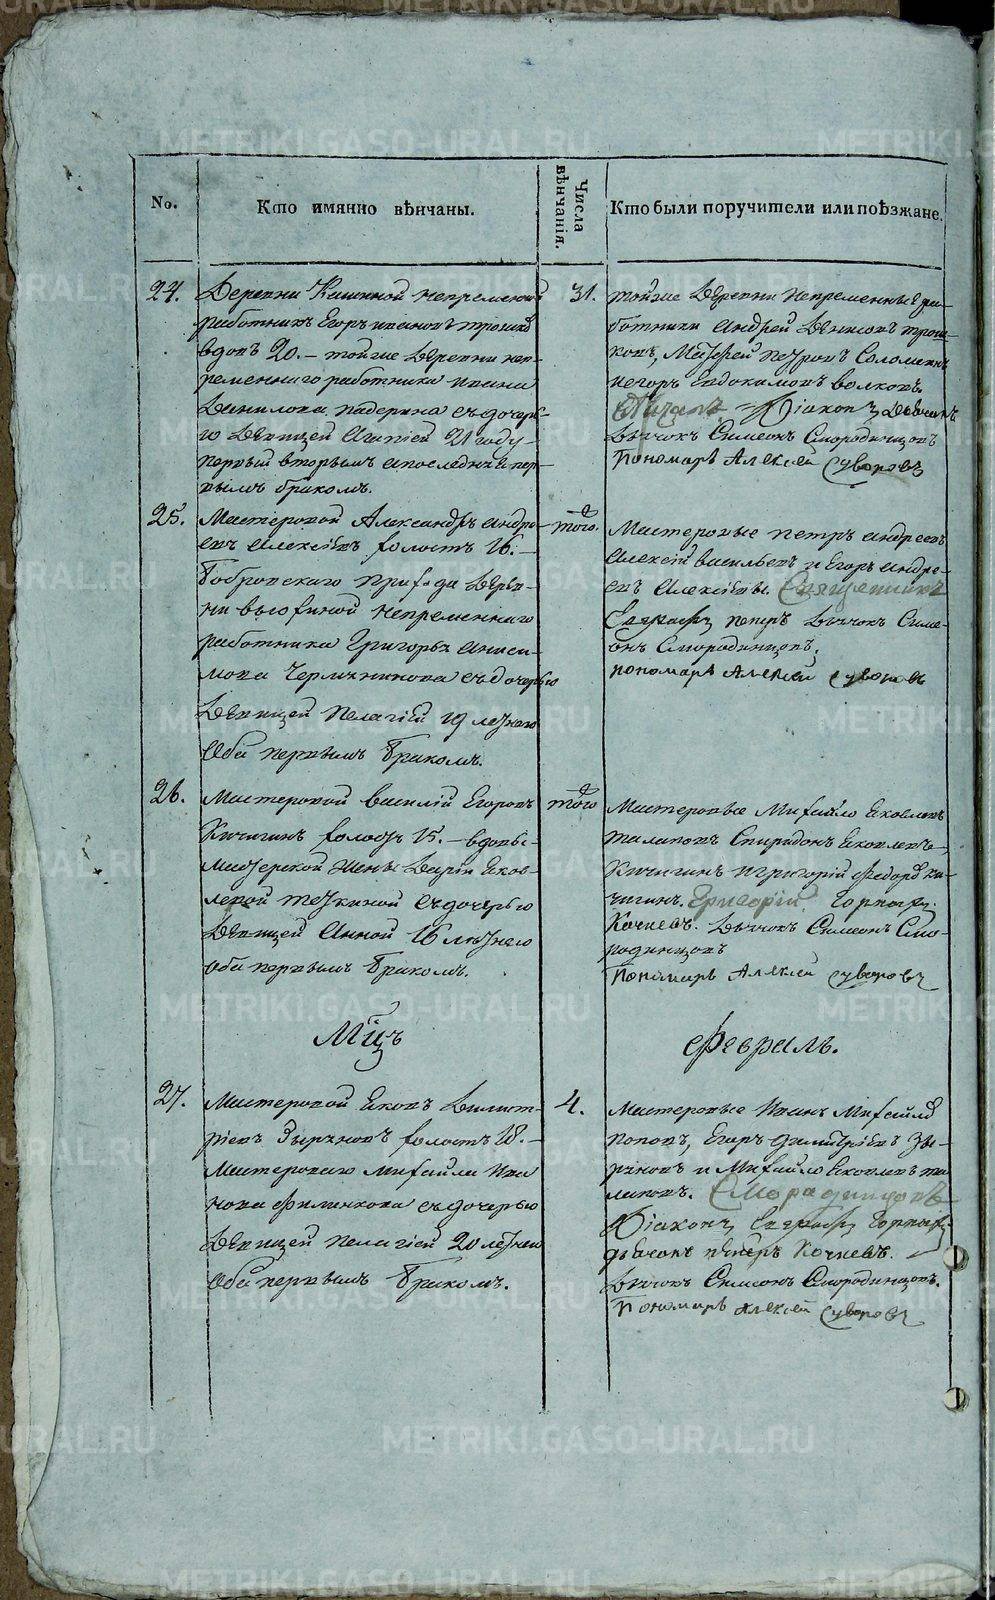 No.
Кто имянно вѣнчаны.
Числа вѣнчанія.
Кто были поручители или поѣзжане.
24.
Деревни Кашиной непременной
работникъ Егоръ ивановъ
вдовъ 20. – тойже деревни неп-
ременнаго работника ивана
Данилова падерина съ дочерь-
ю девицей 21 году
первый вторымъ а последняя пер-
вымъ бракомъ.
31.
тойже деревни непременные ра-
ботники андрей Денисовъ
Матфей петровъ Соломеинъ
иегоръ Евдокимовъ волковъ.
Діаконъ
Дьячокъ Симеонъ Смородинцовъ
Пономарь Алексей Суворовъ
25.
Мастеровой Александръ андре-
евъ алексѣевъ холостъ 16. –
прихода дерев-
ни непременнаго
работника Григорья аниси-
мова съ дочерью
девицей пелагіей 19 летнею
Оба первымъ бракомъ.
того.
Мастеровые петръ андреевъ
алексѣй васильевъ и Егоръ андре-
евъ алексѣевы. Священникъ
Дьячокъ Симе-
онъ Смородинцовъ.
пономарь Алексей Суворовъ
26.
Мастеровой василій Егоровъ
Кичигинъ холостъ 15. – вдовы
мастерской жены Дарьи Яков-
левой съ дочерью
девицей Анной 16 летнею
оба первымъ бракомъ.
того
Мастеровые Михайло Яковлевъ
талаповъ Спиридонъ Яковлевъ
Кичигинъ игригорій Федоръ ки-
чигинъ. Григорій
Кочневъ. Дьячокъ Симеонъ Смо-
родинцовъ
Пономарь Алексей Суворовъ
Мцъ
Февраль.
27.
Мастеровой Яковъ Димит-
ріевъ Зыряновъ холостъ 18. –
Мастероваго михайла Ива
нова филинкова съ дочерью
девицей пелагіей 20 летнею
Оба первымъ бракомъ.
4.
Мастеровые Иванъ Михайло
поповъ, Егоръ димитріевъ Зы-
ряновъ и Михайло Яковлевъ та
лаповъ.
Діаконъ
Кочневъ.
Дьячокъ Симеонъ Смородинцовъ.
Пономарь Алексей Суворовъ
METRIKI.GASO-URAL.RU